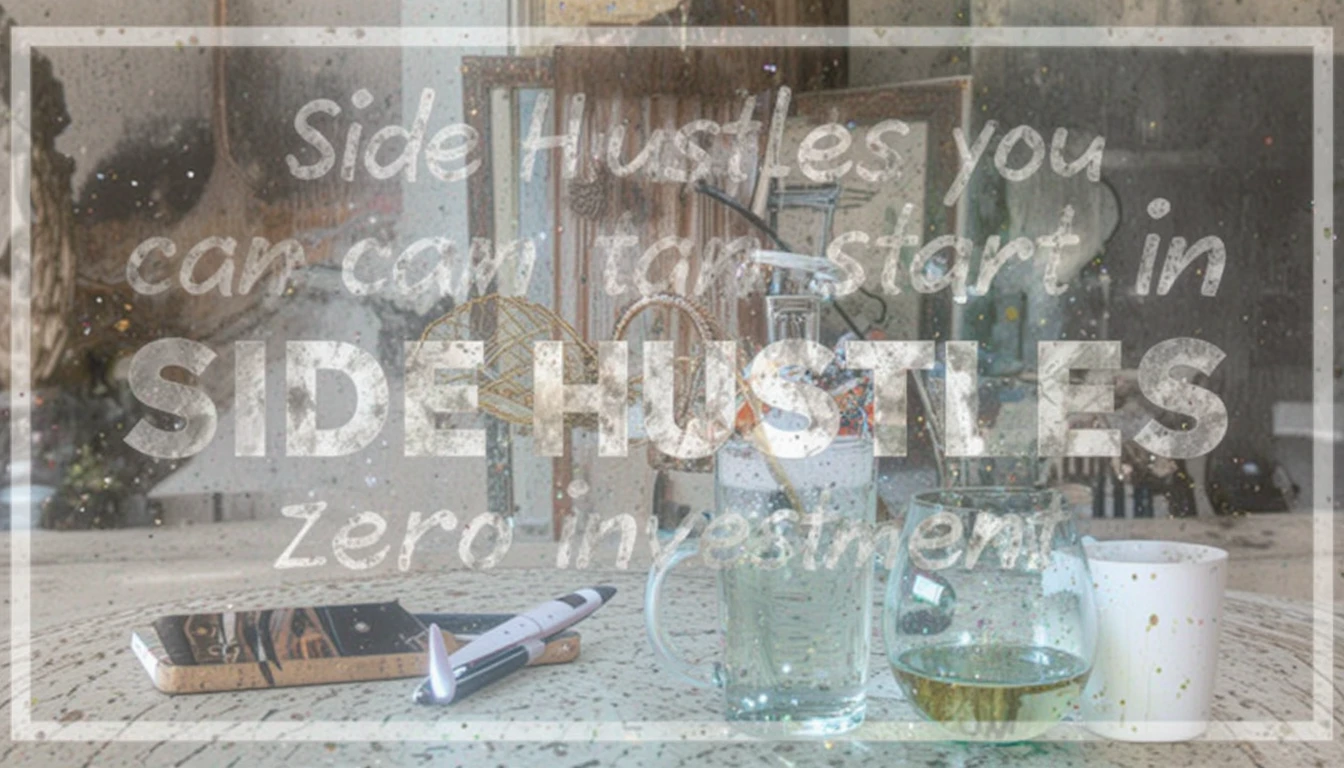 Side Hustles you
can cam tam start in
SIDE HUSTLES
Zero investment